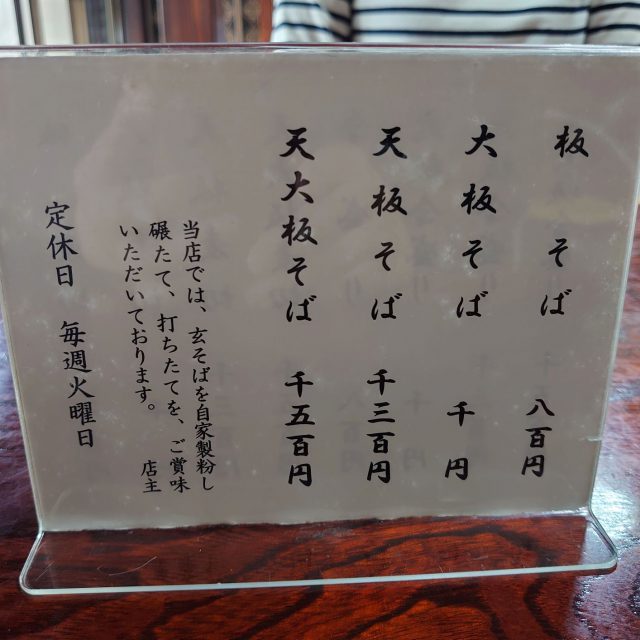 板そば 八百円
大板そば 千円
天板そば 千三百円
天大板そば 千五百円
当店では、玄そばを自家製粉し
碾たて、打ちたてを、ご賞味
いただいております。
店主
定休日 毎週火曜日